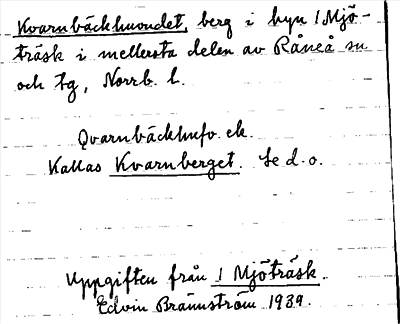 Kvarnbäckhuvudet, berg i byn 1 Mjö-
träsk i mellersta delen av Råneå sn
och tg, Norrb. l.
Qvarnbäckhufv. ek.
Kallas Kvarnberget. Se d. o.
Uppgiften från 1 Mjöträsk.
Edvin Brännström 1939.